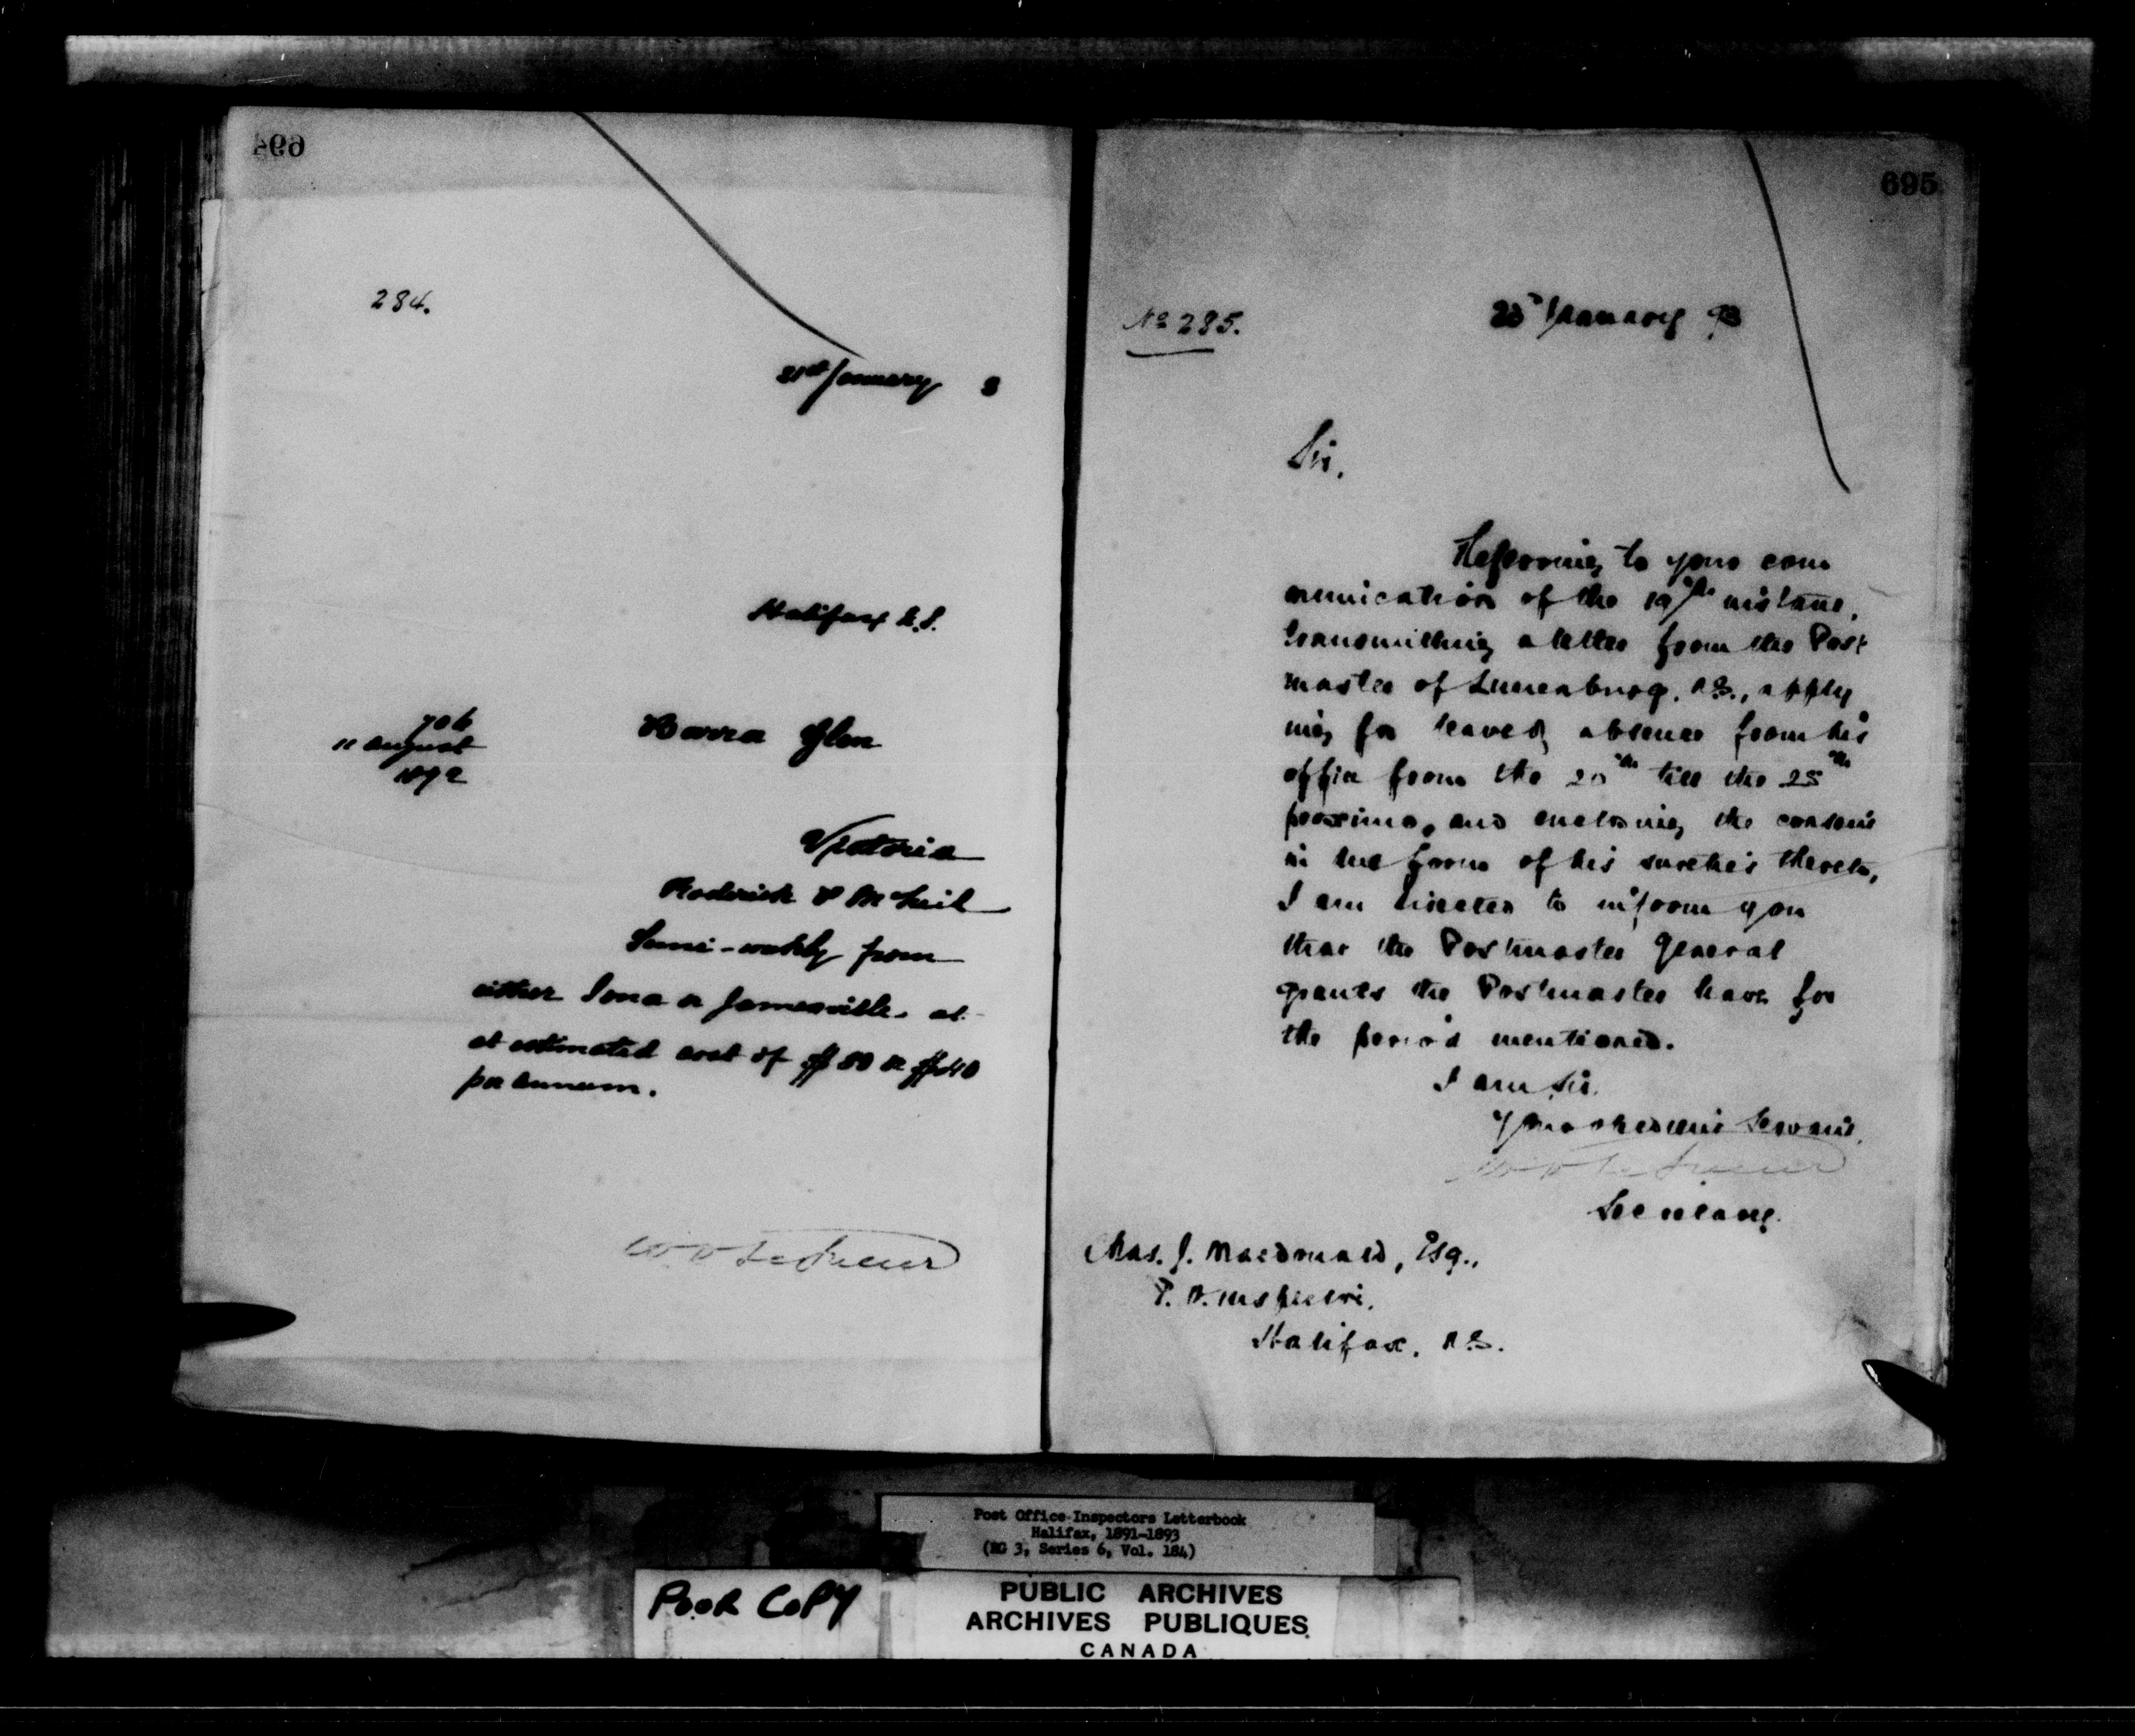 694
284.
21st January 3
Halifax N.S.
706
11 August
1892
Barra Glen
Victoria
Roderick P McNeil
Semi-weekly from
either Iona or Jamesville at
at estimated cost of $50 or $40
per annum.
W D LeSueur
695
No 285.
January 93
Sir,
Referring to your com
munication of the 19th instant,
transmitting a letter from the Post
master of Lunenburg, N.S., apply
ing for leave of absence from his
office from the 20th till the 25th
proximo, and enclosing the consent
in due form of his sureties thereto,
I am directed to inform you
that the Postmaster General
grants the Postmaster leave for
the period mentioned.
I am Sir.
Your obedient Servant,
W D LeSueur
Secretary.
Chas. J. Macdonald, Esq.,
P. O. Inspector,
Halifax, N.S.
Post Office Inspectors Letterbook
Halifax, 1891-1893
(RG 3, Series 6, Vol. 184)
POOR COPY
PUBLIC ARCHIVES
ARCHIVES PUBLIQUES
CANADA